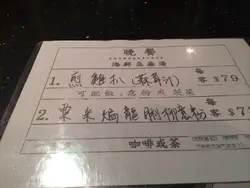 晚餐
海鮮忌廉湯
1. 煎雞扒(蒜茸汁) 每客 $79
可配飯,意粉或薯菜
2. 粟米焗龍脷柳意粉 每客 $7
咖啡或茶